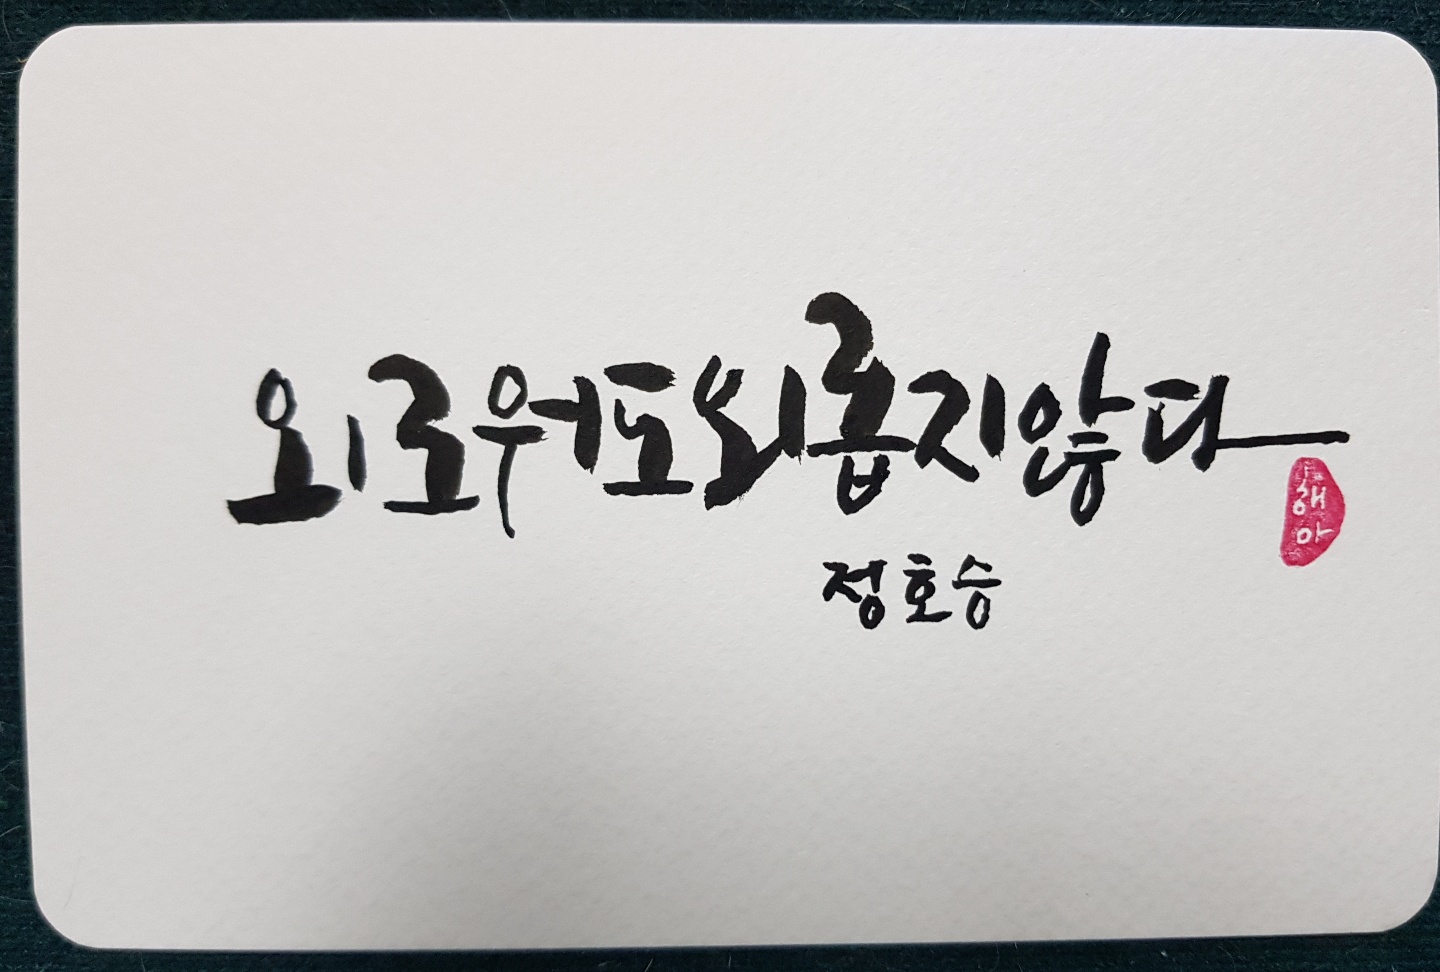 외로워도 외롭지 않다
정호승
해
아